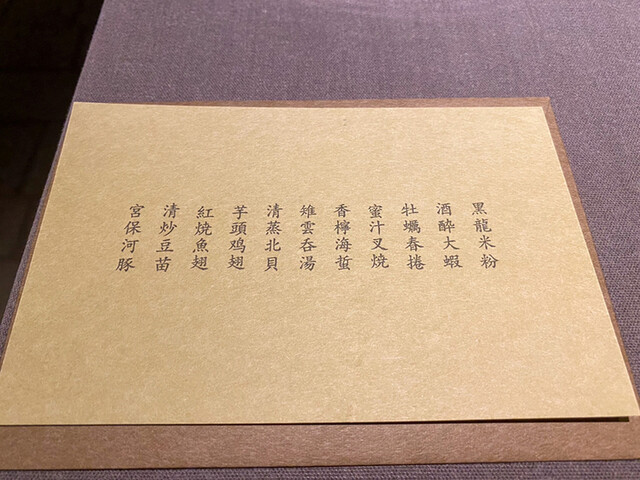 黒龍米粉
酒醉大蝦
牡蠣春捲
蜜汁叉焼
香檸海蜇
雉雲呑湯
清蒸北貝
芋頭鸡翅
紅焼魚翅
清炒豆苗
宮保河豚